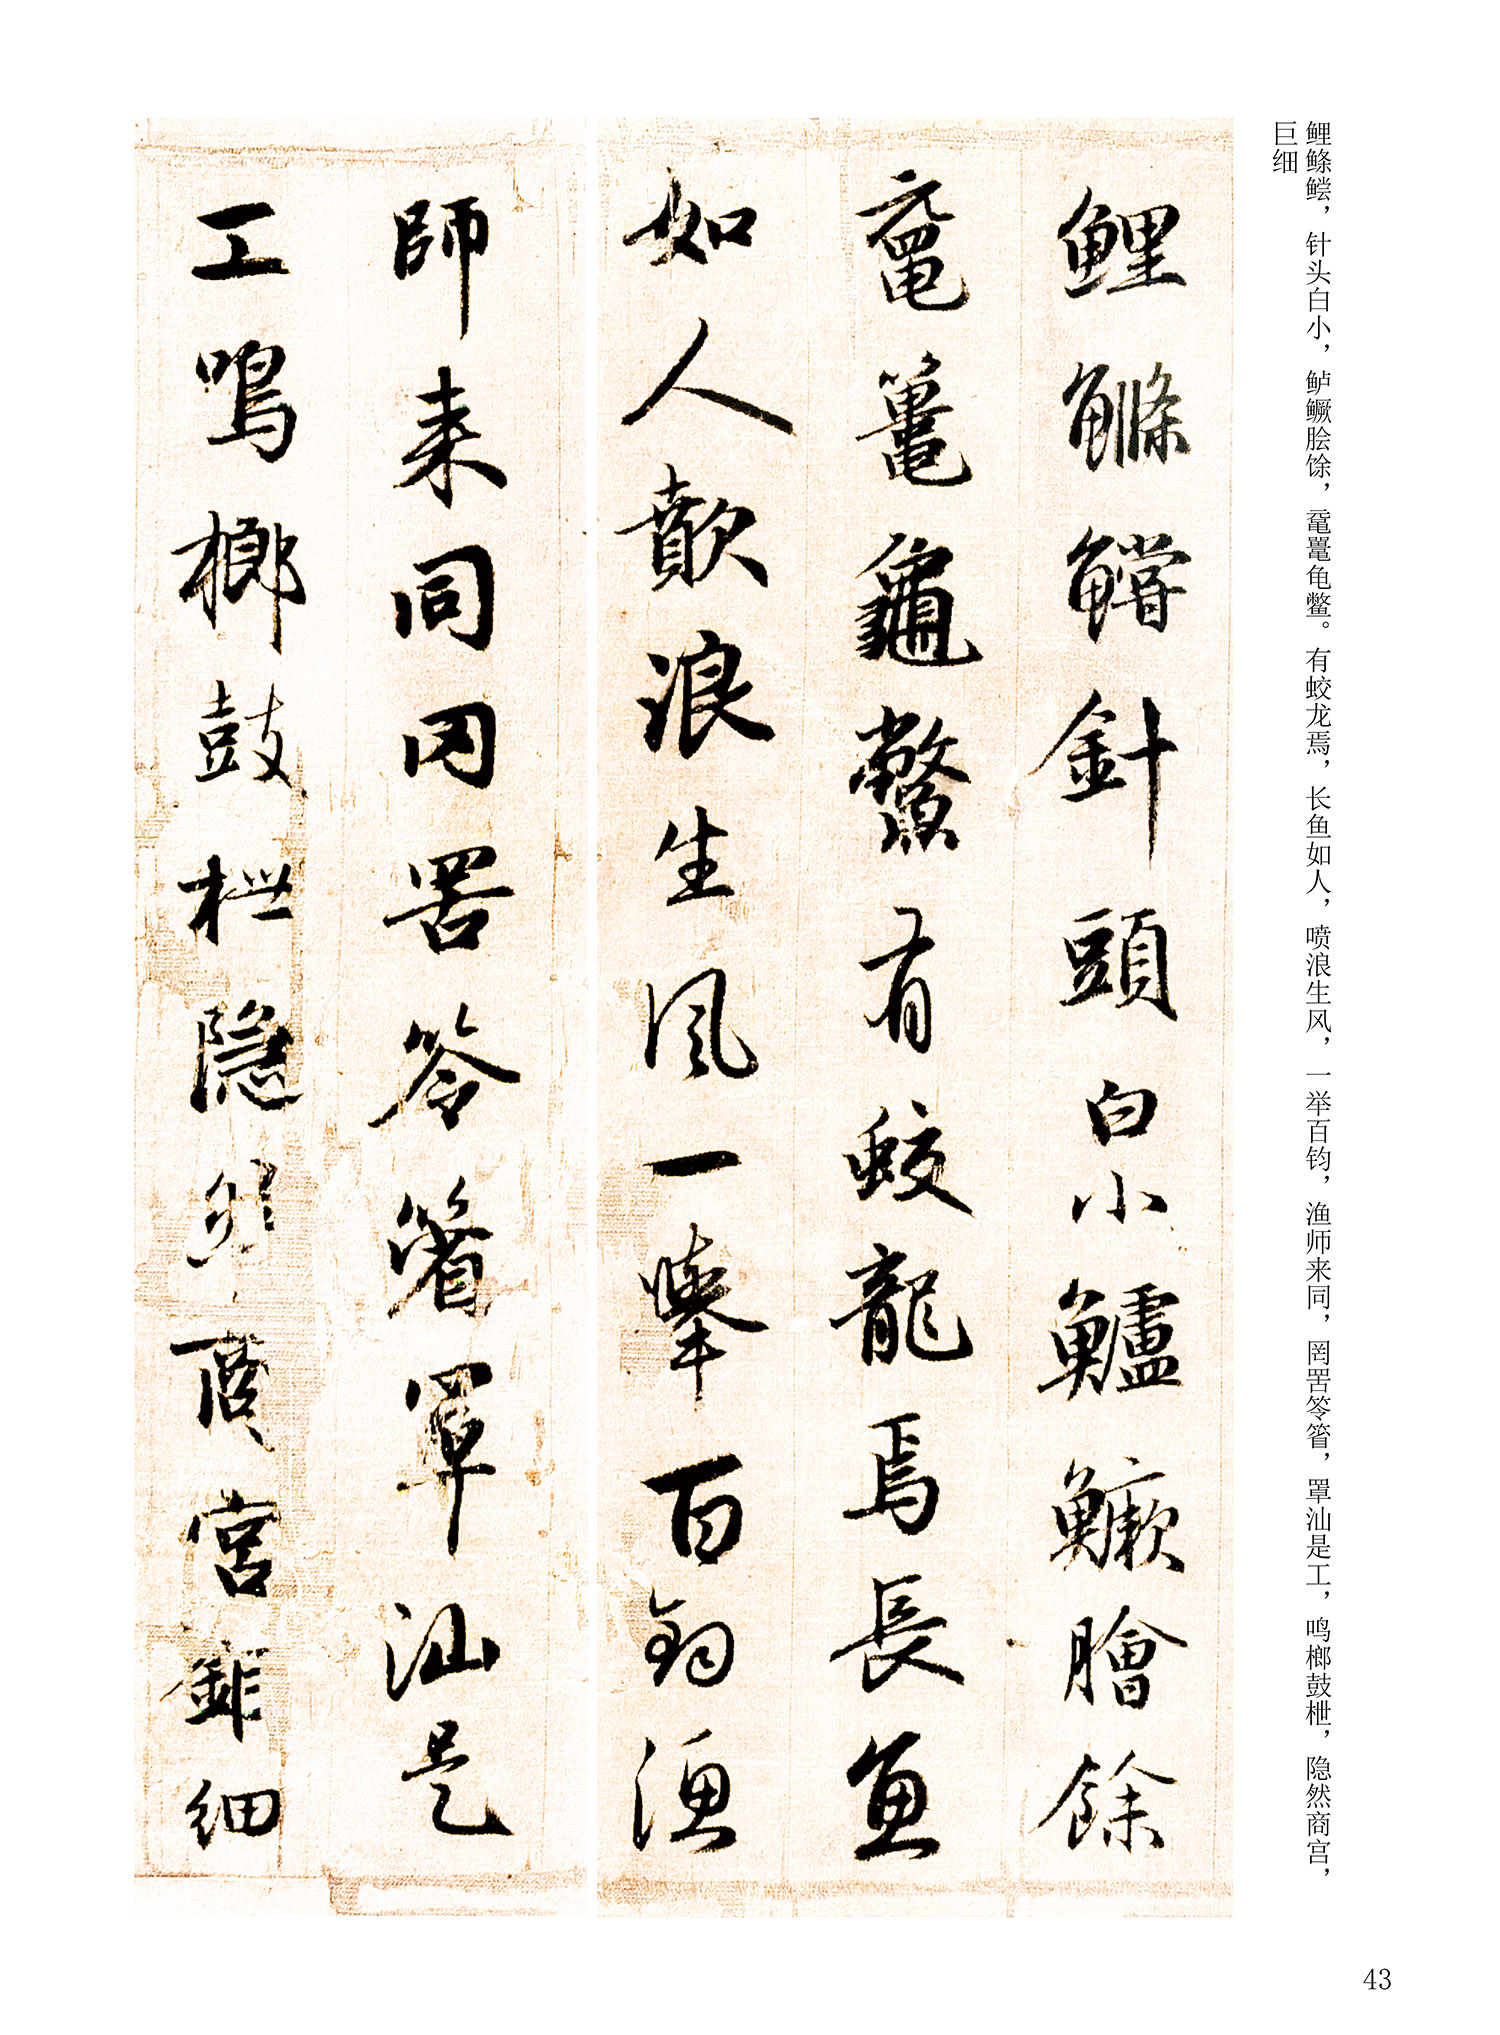 鲤鲦鲿，针头白小，鲈鳜脍馀，鼋鼍龟鳖。有蛟龙焉，长鱼如人，喷浪生风，一举百钧，渔师来同，罔罟笭箵，罩汕是工，鸣榔鼓枻，隐然商宫，
巨细
鯉鰷鱨針頭白小鱸鱖膾餘
黿鼉龜鱉有蛟龍焉長魚
如人歕浪生風一舉百鈞漁
師来同罔罟笭箵罩汕是
工鳴榔鼓枻隐然商宫鉅細
43